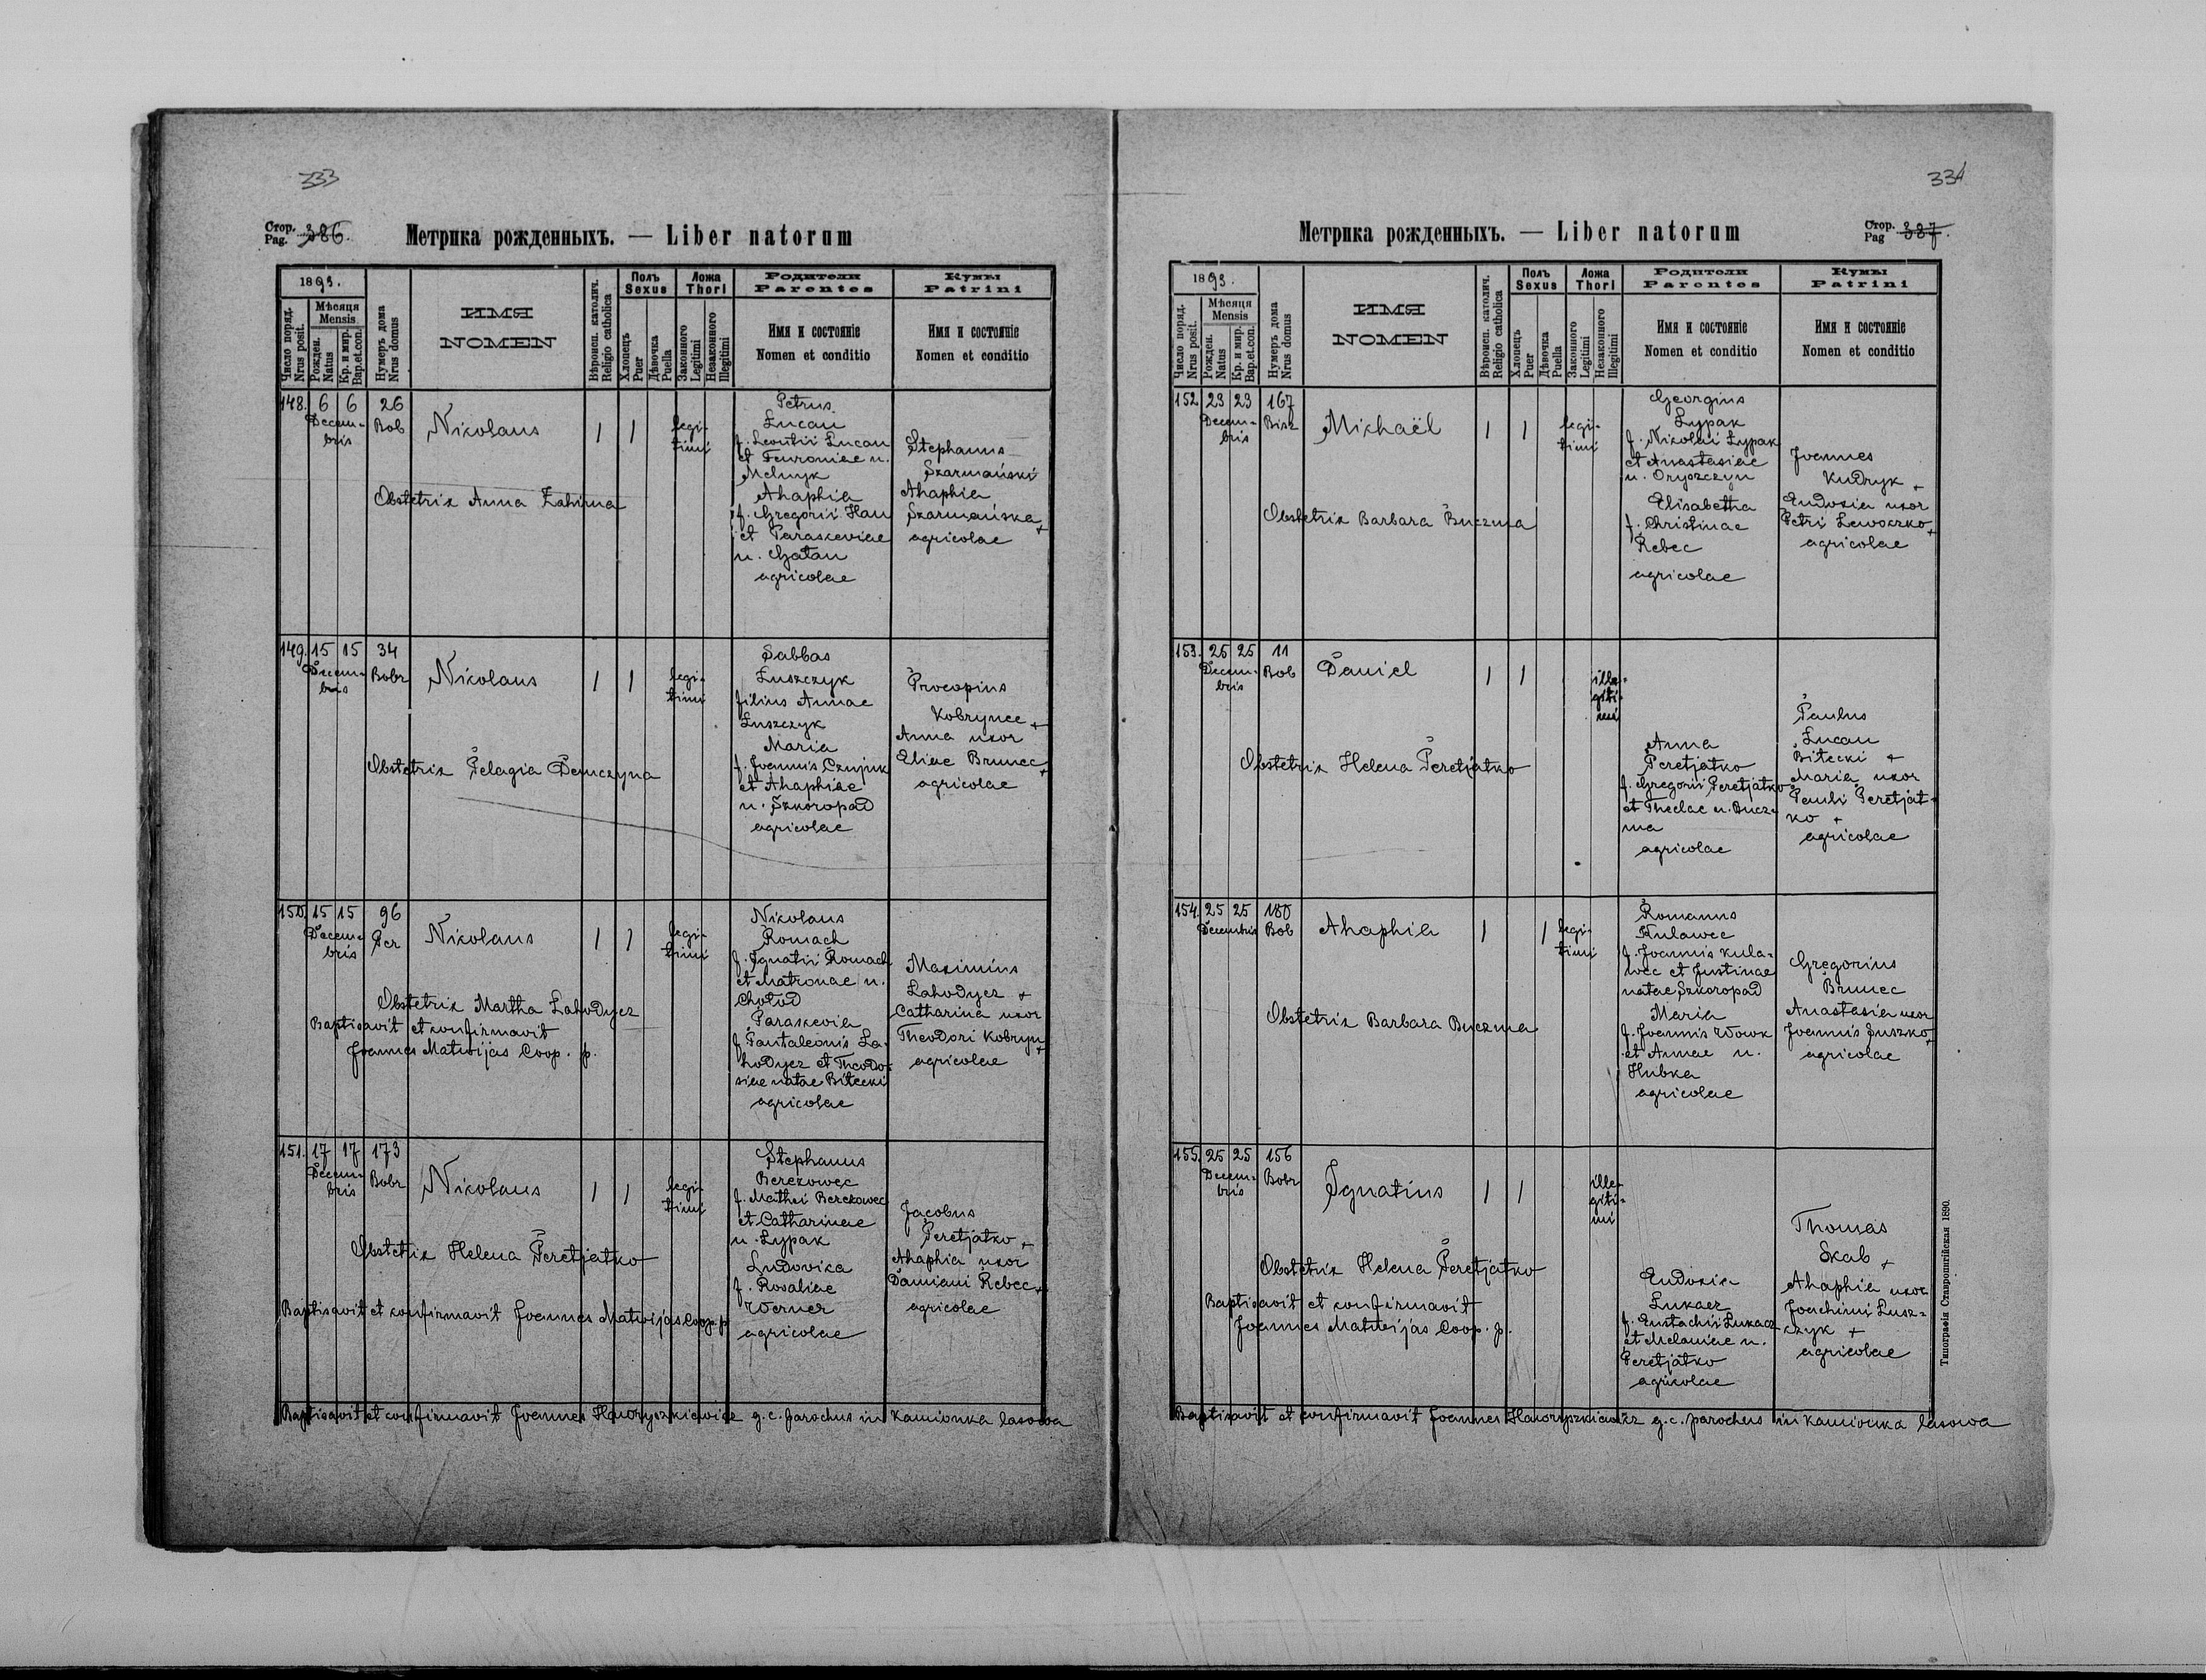 333
Стор.
Pag. 386.
Метрика рожденныхъ. — Liber natorum
1893.
Число поряд.
Nrus posit.
Мѣсяця
Mensis
Рожден.
Natus
Кр. и мир.
Bap.et.con.
Нумеръ дома
Nrus domus
ИМЯ
NOMEN
Вѣроисп. католич.
Religio catholica
Полъ
Sexus
Хлопецъ
Puer
Дѣвочка
Puella
Ложа
Thori
Законного
Legitimi
Незаконного
Illegitimi
Родители
Parentes
Имя и состояніе
Nomen et conditio
Кумы
Patrini
Имя и состояніе
Nomen et conditio
148. 6 6 26
Decem-
bris
Bob
Nicolaus
1 1
legi-
timi
Petrus
Lucau
f. Leontii Lucau
et Feuroniae n.
Melnyk
Ahaphia
f. Gregorii Hau
et Parasceviae
n. Gatau
agricolae
Stephanus
Szarmański
Ahaphia
Szarmańska +
agricolae
Obstetrix Anna
149. 15 15 34
Decem-
bris
Bobr
Nicolaus
1 1
legi-
timi
Sabbas
Łuszczyk
filius Annae
Łuszczyk
Maria
f. Joannis Czujuk
et Ahaphiae
n. Szkoropad
agricolae
Procopius
Kobrynec +
Anna uxor
Eliae Brunec +
agricolae
Obstetrix Pelagia Demczyna
150. 15 15 96
Decem-
bris
Per
Nicolaus
1 1
legi-
timi
Nicolaus
Romach
f. Ignatii Romach
et Matronae n.
Chołod
Parascevia
f. Pantaleonis La-
hodycz et Theodo-
siae natae Bitecki
agricolae
Maximius
Lahodycz +
Catharina uxor
Theodori Kobryn +
agricolae
Obstetrix Martha Lahodycz
Baptisavit et confirmavit
Joannes Matwijas Coop. p.
151. 17 17 173
Decem-
bris
Bobr
Nicolaus
1 1
legi-
timi
Stephanus
Berezowec
f. Mathei Berezowec
et Catharinae
n. Lypak
Ludovica
f. Rosaliae
Werner
agricolae
Jacobus
Peretjatko +
Ahaphia uxor
Damiani Rebec +
agricolae
Obstetrix Helena Peretjatko
Baptisavit et confirmavit Joannes Matwijas Coop. p.
Baptisavit et confirmavit Joannes Haworyszkiewicz g. c. parochus in Kamionka lasowa
334
Метрика рожденныхъ. — Liber natorum
Стор.
Pag 387.
1893.
Число поряд.
Nrus posit.
Мѣсяця
Mensis
Рожден.
Natus
Кр. и мир.
Bap.et.con.
Нумеръ дома
Nrus domus
ИМЯ
NOMEN
Вѣроисп. католич.
Religio catholica
Полъ
Sexus
Хлопецъ
Puer
Дѣвочка
Puella
Ложа
Thori
Законного
Legitimi
Незаконного
Illegitimi
Родители
Parentes
Имя и состояніе
Nomen et conditio
Кумы
Patrini
Имя и состояніе
Nomen et conditio
152 23 23 167
Decem-
bris
Michaël
1 1
legi-
timi
Georgius
Lypak
f. Nicolai Lypak
et Anastasiae
n. Oryszczyn
Elisabetha
f. Christinae
Rebec
agricolae
Joannes
Kudryk +
Eudoxia uxor
Petri Lewoczko +
agricolae
Obstetrix Barbara Buczma
153. 25 25 11
Decem-
bris
Bob
Daniel
1 1
ille-
giti-
mi
Anna
Peretjatko
f. Gregorii Peretjatko
et Theclae n. Bucz-
ma
agricolae
Paulus
Lucau
Bitecki +
Maria uxor
Pauli Peretjat-
ko +
agricolae
Obstetrix Helena Peretjatko
154. 25 25 180
Decembris
Bob
Ahaphia
1 1
legi-
timi
Romanus
Kulawec
f. Joannis Kula-
wec et Justinae
natae Szkoropad
Maria
f. Joannis Wowk
et Annae n.
Hubka
agricolae
Gregorius
Brunec
Anastasia uxor
Joannis Juszko +
agricolae
Obstetrix Barbara Buczma
155. 25 25 156
Decem-
bris
Bobr
Ignatius
1 1
ille-
giti-
mi
Eudoxia
Lukacz
f. Eustachii Lukacz
et Melaniae n.
Peretjatko
agricolae
Thomas
Skab +
Ahaphia uxor
Joachimi Lusz-
czyk +
agricolae
Obstetrix Helena Peretjatko
Baptisavit et confirmavit
Joannes Matwijas Coop. p.
Baptisavit et confirmavit Joannes Haworyszkiewicz g. c. parochus in Kamionka lasowa
Типографія Ставропигійская 1890.